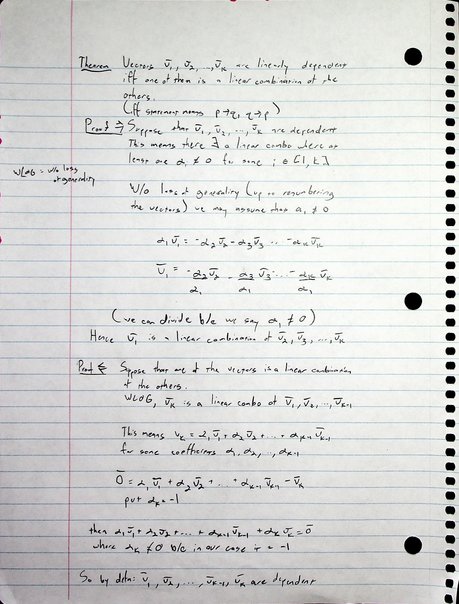 Theorem Vectors v̄₁, v̄₂, ..., v̄ₖ are linearly dependent
iff one of them is a linear combination of the
others.
(iff statement means p→q, q→p)
Proof ⇒ Suppose that v̄₁, v̄₂, ..., v̄ₖ are dependent
This means there ∃ a linear combo where at
least one αᵢ ≠ 0 for some i ∈ [1, k]
WLOG = w/o loss
of generality
W/o loss of generality (up to renumbering
the vectors) we may assume that α₁ ≠ 0
α₁v̄₁ = -α₂v̄₂ - α₃v̄₃ ... -αₖv̄ₖ
v̄₁ = -α₂/α₁ v̄₂ - α₃/α₁ v̄₃ ... - αₖ/α₁ v̄ₖ
(we can divide b/c we say α₁ ≠ 0)
Hence v̄₁ is a linear combination of v̄₂, v̄₃, ..., v̄ₖ
Proof ⇐ Suppose that one of the vectors is a linear combination
of the others.
WLOG, v̄ₖ is a linear combo of v̄₁, v̄₂, ..., v̄ₖ₋₁
This means vₖ = α₁v̄₁ + α₂v̄₂ + ... + αₖ₋₁v̄ₖ₋₁
for some coefficients α₁, α₂, ..., αₖ₋₁
0̄ = α₁v̄₁ + α₂v̄₂ + ... + αₖ₋₁v̄ₖ₋₁ - v̄ₖ
put αₖ = -1
then α₁v̄₁ + α₂v̄₂ + ... + αₖ₋₁v̄ₖ₋₁ + αₖv̄ₖ = 0̄
where αₖ ≠ 0 b/c in our case it = -1
So by defn: v̄₁, v̄₂, ..., v̄ₖ₋₁, v̄ₖ are dependent